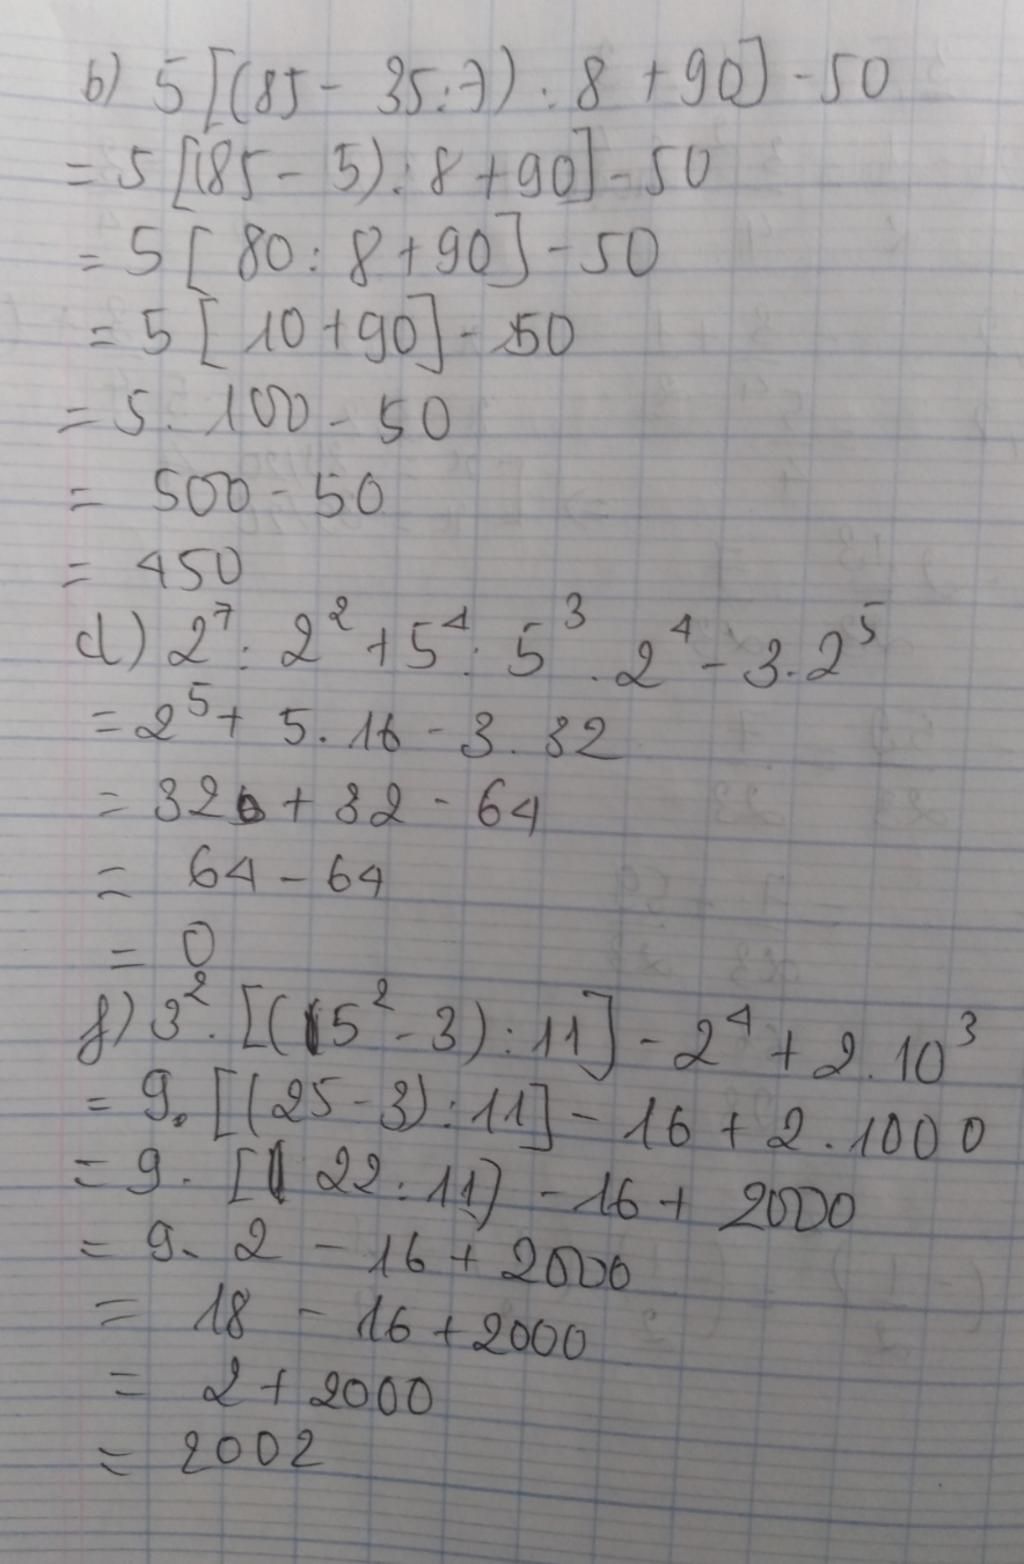 b) 5[(85 - 35:7) : 8 + 90] - 50
= 5[(85 - 5) : 8 + 90] - 50
= 5[80 : 8 + 90] - 50
= 5[10 + 90] - 50
= 5. 100 - 50
= 500 - 50
= 450
d) 2⁷ : 2² + 5⁴ : 5³ . 2⁴ - 3.2⁵
= 2⁵ + 5.16 - 3.32
= 32 + 32 - 64
= 64 - 64
= 0
f) 3² . [(5² - 3) : 11] - 2⁴ + 2.10³
= 9. [(25 - 3) : 11] - 16 + 2.1000
= 9. [22 : 11] - 16 + 2000
= 9. 2 - 16 + 2000
= 18 - 16 + 2000
= 2 + 2000
= 2002